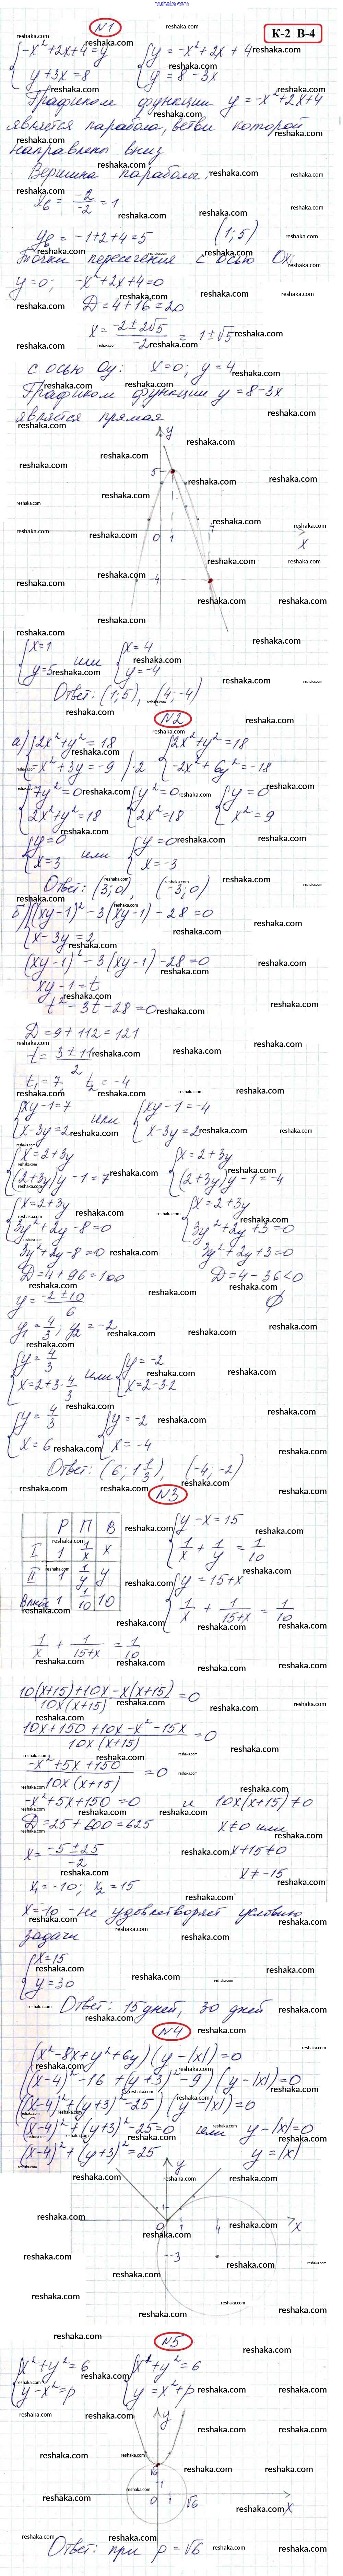 reshaka.com
К-2 В-4
№1
{-x²+2x+4=y
y+3x=8
{y=-x²+2x+4
y=8-3x
Графиком функции y=-x²+2x+4
является парабола, ветви которой
направлены вниз
Вершина парабола:
xв = -2/-2 = 1
yв = -1+2+4=5 (1;5)
Точки пересечения с осью Ox:
y=0; -x²+2x+4=0
D=4+16=20
x = (-2±2√5)/-2 = 1±√5
с осью Oy: x=0; y=4
Графиком функции y=8-3x
является прямая
y
5
0 1 4 x
-4
{x=1
y=5
или
{x=4
y=-4
Ответ: (1;5), (4;-4)
№2
а) {2x²+y²=18
-x²+3y=-9 |·2
{2x²+y²=18
-2x²+6y²=-18
{7y²=0
2x²+y²=18
{y²=0
2x²=18
{y=0
x²=9
{y=0
x=3
или
{y=0
x=-3
Ответ: (3;0), (-3;0)
б) {(xy-1)²-3(xy-1)-28=0
x-3y=2
(xy-1)²-3(xy-1)-28=0
xy-1=t
t²-3t-28=0
D=9+112=121
t = (3±11)/2
t₁=7, t₂=-4
{xy-1=7
x-3y=2
или
{xy-1=-4
x-3y=2
{x=2+3y
(2+3y)y-1=7
{x=2+3y
(2+3y)y-1=-4
{x=2+3y
3y²+2y-8=0
{x=2+3y
3y²+2y+3=0
3y²+2y-8=0
3y²+2y+3=0
D=4+96=100
D=4-36<0
y = (-2±10)/6
∅
y₁=4/3; y₂=-2
{y=4/3
x=2+3·4/3
или
{y=-2
x=2-3·2
{y=4/3
x=6
{y=-2
x=-4
Ответ: (6; 1 1/3), (-4;-2)
№3
Р П В
I 1 1/x x
II 1 1/y y
Вместе 1 1/10 10
{y-x=15
1/x + 1/y = 1/10
{y=15+x
1/x + 1/(15+x) = 1/10
1/x + 1/(15+x) = 1/10
(10(x+15)+10x-x(x+15))/(10x(x+15)) = 0
(10x+150+10x-x²-15x)/(10x(x+15)) = 0
(-x²+5x+150)/(10x(x+15)) = 0
-x²+5x+150=0 и 10x(x+15)≠0
D=25+600=625 x≠0 или
x = (-5±25)/-2 x+15≠0
x₁=-10; x₂=15 x≠-15
x=-10 - не удовлетворяет условию
задачи
{x=15
y=30
Ответ: 15 дней, 30 дней
№4
(x²-8x+y²+6y)(y-|x|)=0
((x-4)²-16+(y+3)²-9)(y-|x|)=0
((x-4)²+(y+3)²-25)(y-|x|)=0
(x-4)²+(y+3)²-25=0 или y-|x|=0
(x-4)²+(y+3)²=25 y=|x|
y
1
0 1 4 x
-3
№5
{x²+y²=6
y-x²=p
{x²+y²=6
y=x²+p
y
√6
1
0 1 √6 x
Ответ: при p=√6